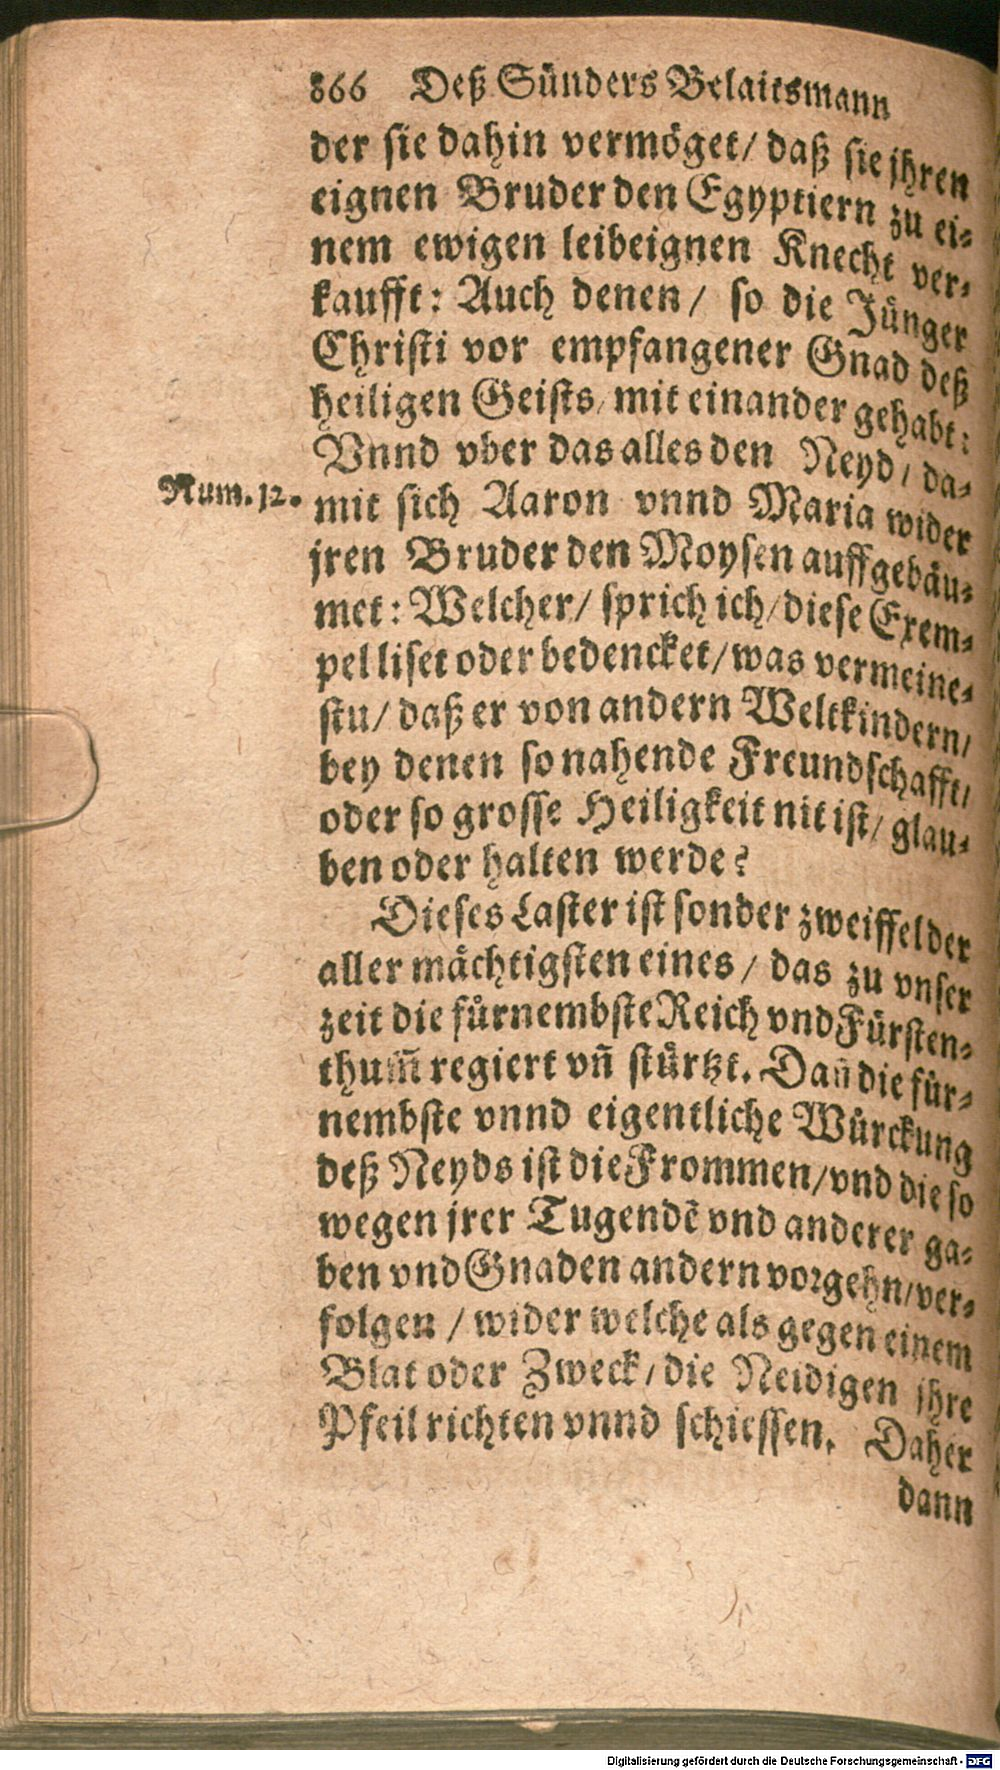 866 Deß Sünders Belaitsmann
der sie dahin vermöget/ daß sie jhren
eignen Bruder den Egyptiern zu ei-
nem ewigen leibeignen Knecht ver-
kaufft: Auch denen/ so die Jünger
Christi vor empfangener Gnad deß
heiligen Geists/ mit einander gehabt:
Vnnd vber das alles den Neyd/ da-
Num. 12. mit sich Aaron vnnd Maria wider
jren Bruder den Moysen auffgebäu-
met: Welcher/ sprich ich/ diese Exem-
pel liset oder bedencket/ was vermeine-
stu/ daß er von andern Weltkindern/
bey denen so nahende Freundschafft/
oder so grosse Heiligkeit nit ist/ glau-
ben oder halten werde?
Dieses Laster ist sonder zweiffel der
aller mächtigsten eines/ das zu vnser
zeit die fürnembste Reich vnd Fürsten-
thum̃ regiert vñ stürtzt. Dañ die für-
nembste vnnd eigentliche Würckung
deß Neyds ist die Frommen/ vnd die so
wegen jrer Tugendẽ vnd anderer ga-
ben vnd Gnaden andern vorgehn/ ver-
folgen/ wider welche als gegen einem
Blat oder Zweck/ die Neidigen jhre
Pfeil richten vnnd schiessen. Daher
dann
Digitalisierung gefördert durch die Deutsche Forschungsgemeinschaft - DFG